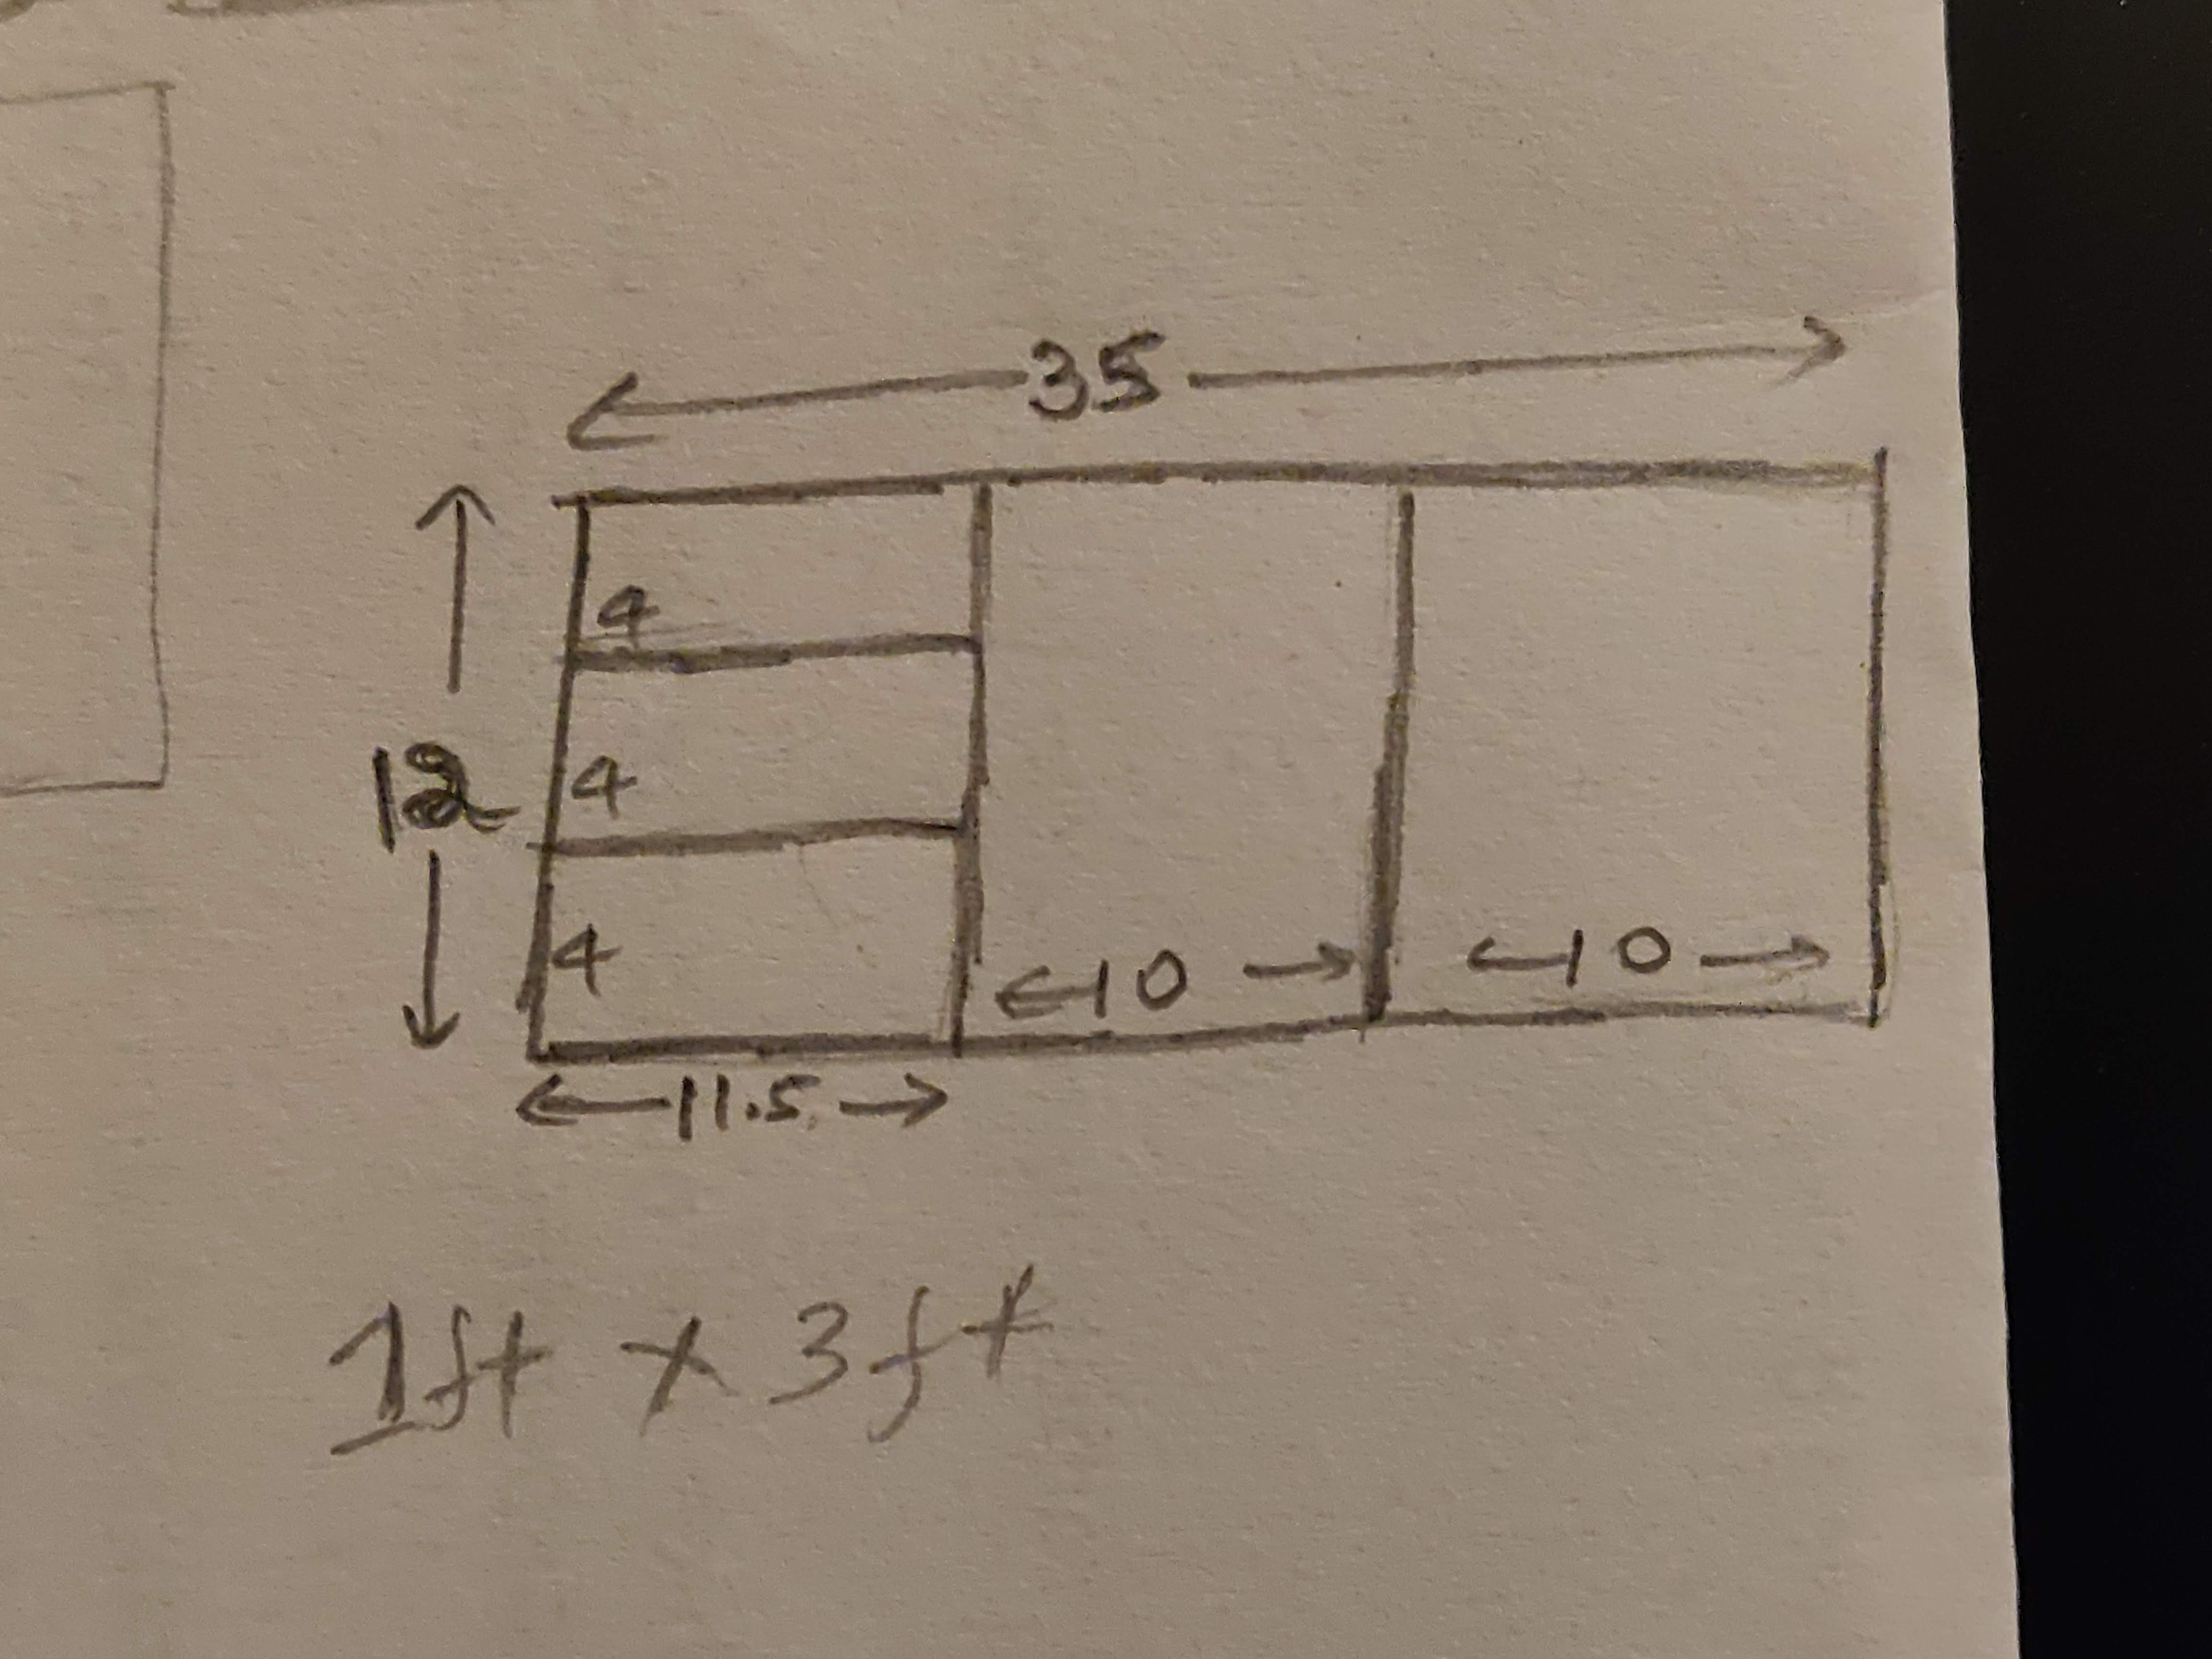 35
4
12
4
4
10
10
11.5
1ft x 3ft